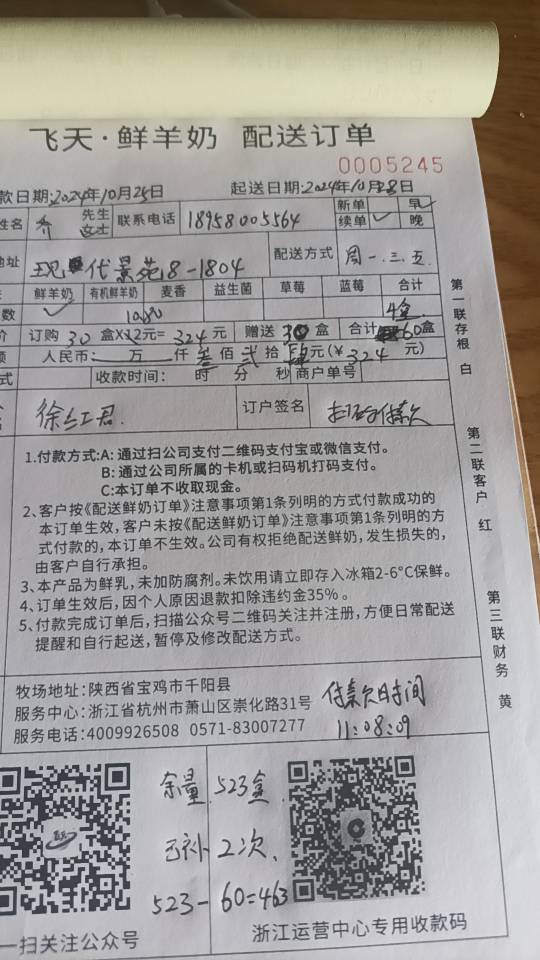 飞天·鲜羊奶 配送订单
0005245
款日期:2024年10月25日 起送日期:2024年10月28日
姓名 乔 先生 女士 联系电话 18958005564 新单 早✓
续单✓ 晚
地址 现代景苑8-1804 配送方式 周一.三.五
鲜羊奶 有机鲜羊奶 麦香 益生菌 草莓 蓝莓 合计
数 ✓ 4盒
价 订购30盒X12元=324元 赠送30盒 合计60盒
额 人民币: 万 仟叁佰贰拾肆元(¥324元)
式 收款时间: 时 分 秒 商户单号
徐红君 订户签名 扫码付款
1.付款方式:A: 通过扫公司支付二维码支付宝或微信支付。
B: 通过公司所属的卡机或扫码机打码支付。
C:本订单不收取现金。
2、客户按《配送鲜奶订单》注意事项第1条列明的方式付款成功的
本订单生效,客户未按《配送鲜奶订单》注意事项第1条列明的方
式付款的,本订单不生效。公司有权拒绝配送鲜奶,发生损失的,
由客户自行承担。
3、本产品为鲜乳,未加防腐剂。未饮用请立即存入冰箱2-6°C保鲜。
4、订单生效后,因个人原因退款扣除违约金35%。
5、付款完成订单后,扫描公众号二维码关注并注册,方便日常配送
提醒和自行起送,暂停及修改配送方式。
牧场地址:陕西省宝鸡市千阳县
服务中心:浙江省杭州市萧山区崇化路31号
服务电话:4009926508 0571-83007277
付款时间
11:08:09
余量 523盒
已补 2次.
523-60=463
一扫关注公众号
浙江运营中心专用收款码
第一联存根 白
第二联客户 红
第三联财务 黄